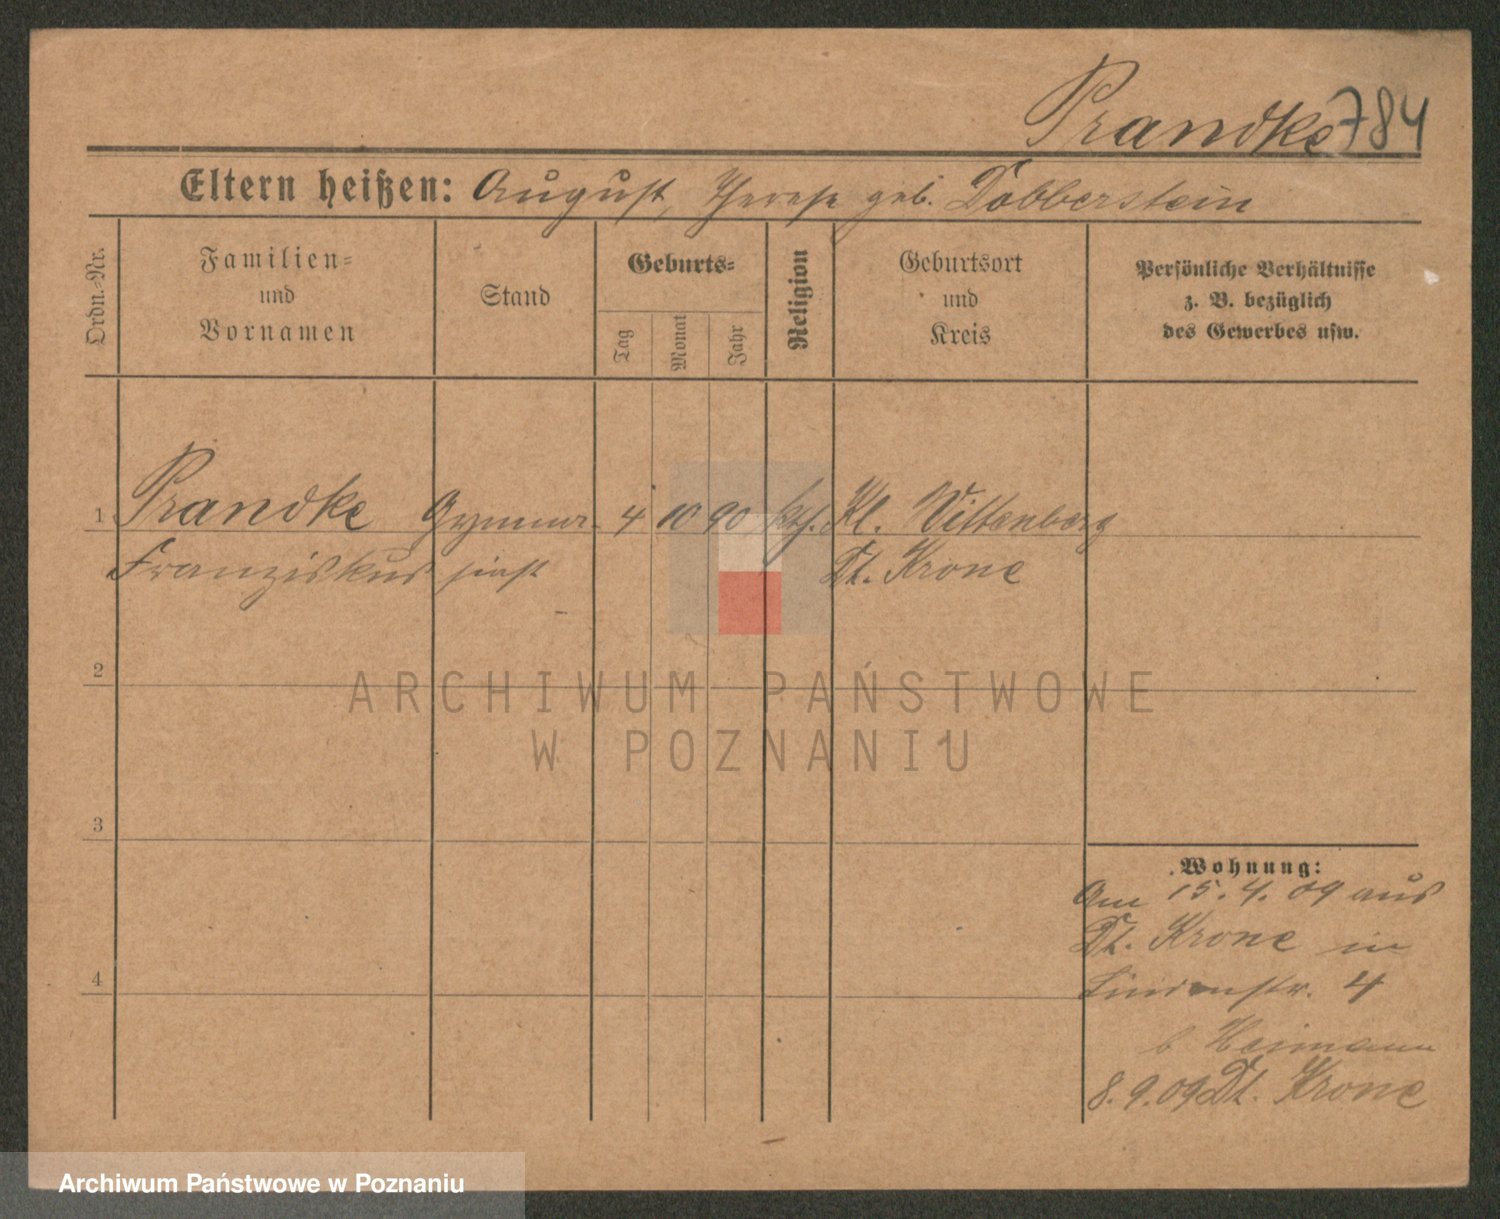 Prandke 784
Eltern heißen: August, Therese geb. Dobberstein
Ordn.-Nr.
Familien-
und
Vornamen
Stand
Geburts-
Tag
Monat
Jahr
Religion
Geburtsort
und
Kreis
Persönliche Verhältnisse
z. B. bezüglich
des Gewerbes usw.
1 Prandke Gymna- 4 10 90 kth. Kl. Wittenberg
Franziskus siast Dt. Krone
2
3
4
Wohnung:
Am 15.4.09 aus
Dt. Krone in
Lindenstr. 4
b Heimann
8.9.09 Dt. Krone
ARCHIWUM PAŃSTWOWE
W POZNANIU
Archiwum Państwowe w Poznaniu